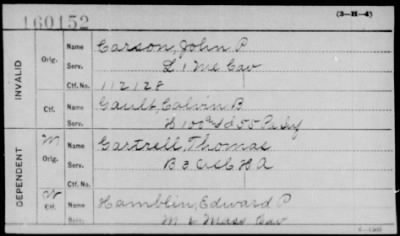 160152
(3-H-4)
INVALID
Orig.
Name Carson, John P
Serv. L 1 Me Cav
Ctf. No. 112128
Ctf. Name Gault, Calvin B
Serv.
DEPENDENT
W
Orig.
Name Gartrell, Thomas
Serv. B 3
H A
W
Ctf.
Name Hamblin, Edward P
Serv. M 2 Mass Cav